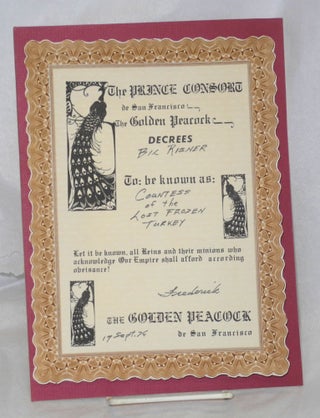 The PRINCE CONSORT
de San Francisco
The Golden Peacock
DECREES
To: be known as:
COUNTESS
of the
LOST FROZEN
TURKEY
Let it be known, all Heins and their minions who
acknowledge Our Empire shall afford according
obeisance!
Frederick
THE GOLDEN PEACOCK
19 Sept. 76 de San Francisco